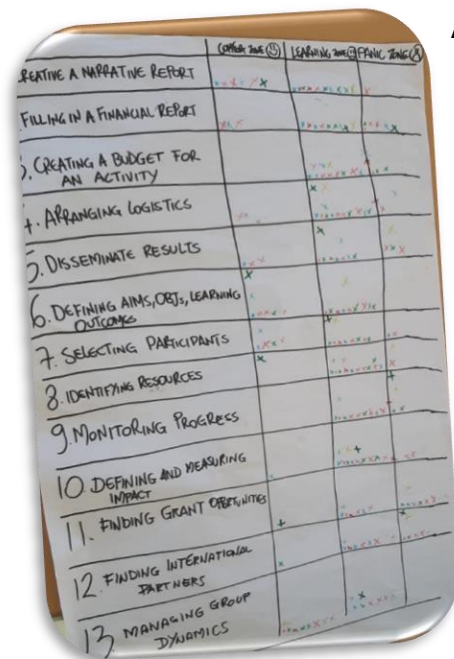 COMFORT ZONE LEARNING ZONE PANIC ZONE
CREATIVE A NARRATIVE REPORT
FILLING IN A FINANCIAL REPORT
3. CREATING A BUDGET FOR
AN ACTIVITY
4. ARRANGING LOGISTICS
5. DISSEMINATE RESULTS
6. DEFINING AIMS, OBJs, LEARNING
OUTCOMES
7. SELECTING PARTICIPANTS
8. IDENTIFYING RESOURCES
9. MONITORING PROGRESS
10. DEFINING AND MEASURING
IMPACT
11. FINDING GRANT OPPORTUNITIES
12. FINDING INTERNATIONAL
PARTNERS
13. MANAGING GROUP
DYNAMICS